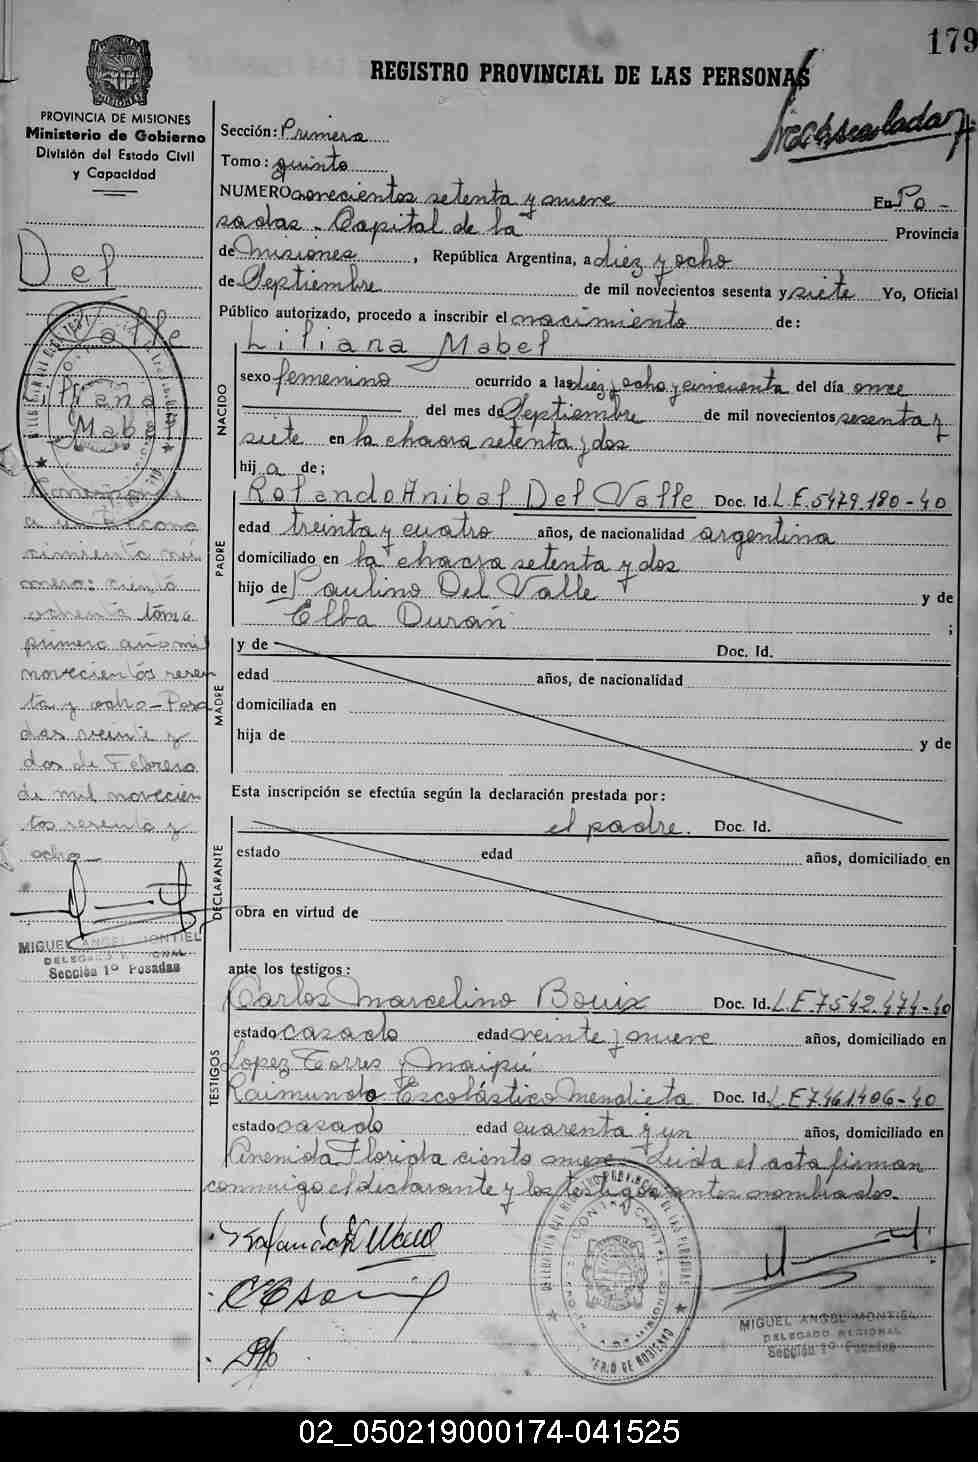 179
REGISTRO PROVINCIAL DE LAS PERSONAS
PROVINCIA DE MISIONES
Ministerio de Gobierno
División del Estado Civil
y Capacidad
Del
Valle
Liliana
Mabel
Corresponde
a un recono
cimiento nú
mero: ciento
ochenta tomo
primero año mil
novecientos sesen
ta y ocho - Posa
das veinte y
dos de Febrero
de mil novecien
tos sesenta y
ocho
MIGUEL ANGEL MONTIEL
DELEGADO REGIONAL
Sección 1º Posadas
Sección: Primera
Tomo: quinto
NUMERO novecientos setenta y nueve En Po-
sadas - Capital de la Provincia
de Misiones, República Argentina, a diez y ocho
de Septiembre de mil novecientos sesenta y siete Yo, Oficial
Público autorizado, procedo a inscribir el nacimiento de:
NACIDO
Liliana Mabel
sexo femenino ocurrido a las diez y ocho y cincuenta del día once
del mes de Septiembre de mil novecientos sesenta y
siete en la chacra setenta y dos
hija de;
PADRE
Rolando Anibal Del Valle Doc. Id. L.E.5479.180-40
edad treinta y cuatro años, de nacionalidad argentina
domiciliado en la chacra setenta y dos
hijo de Paulino Del Valle y de
Elba Durán ;
MADRE
y de Doc. Id.
edad años, de nacionalidad
domiciliada en
hija de y de
Esta inscripción se efectúa según la declaración prestada por:
DECLARANTE
el padre. Doc. Id.
estado edad años, domiciliado en
obra en virtud de
ante los testigos:
TESTIGOS
Carlos Marcelino Bouix Doc. Id. L.E.7542.474-40
estado casado edad veinte y nueve años, domiciliado en
Lopez Torres y Maipú
Raimundo Escolástico Mendieta Doc. Id. L.E.7.461.406-40
estado casado edad cuarenta y un años, domiciliado en
Avenida Florida ciento nueve - Leida el acta firman
conmigo el declarante y los testigos antes nombrados.
MIGUEL ANGEL MONTIEL
DELEGADO REGIONAL
Sección 1º Posadas
02_050219000174-041525